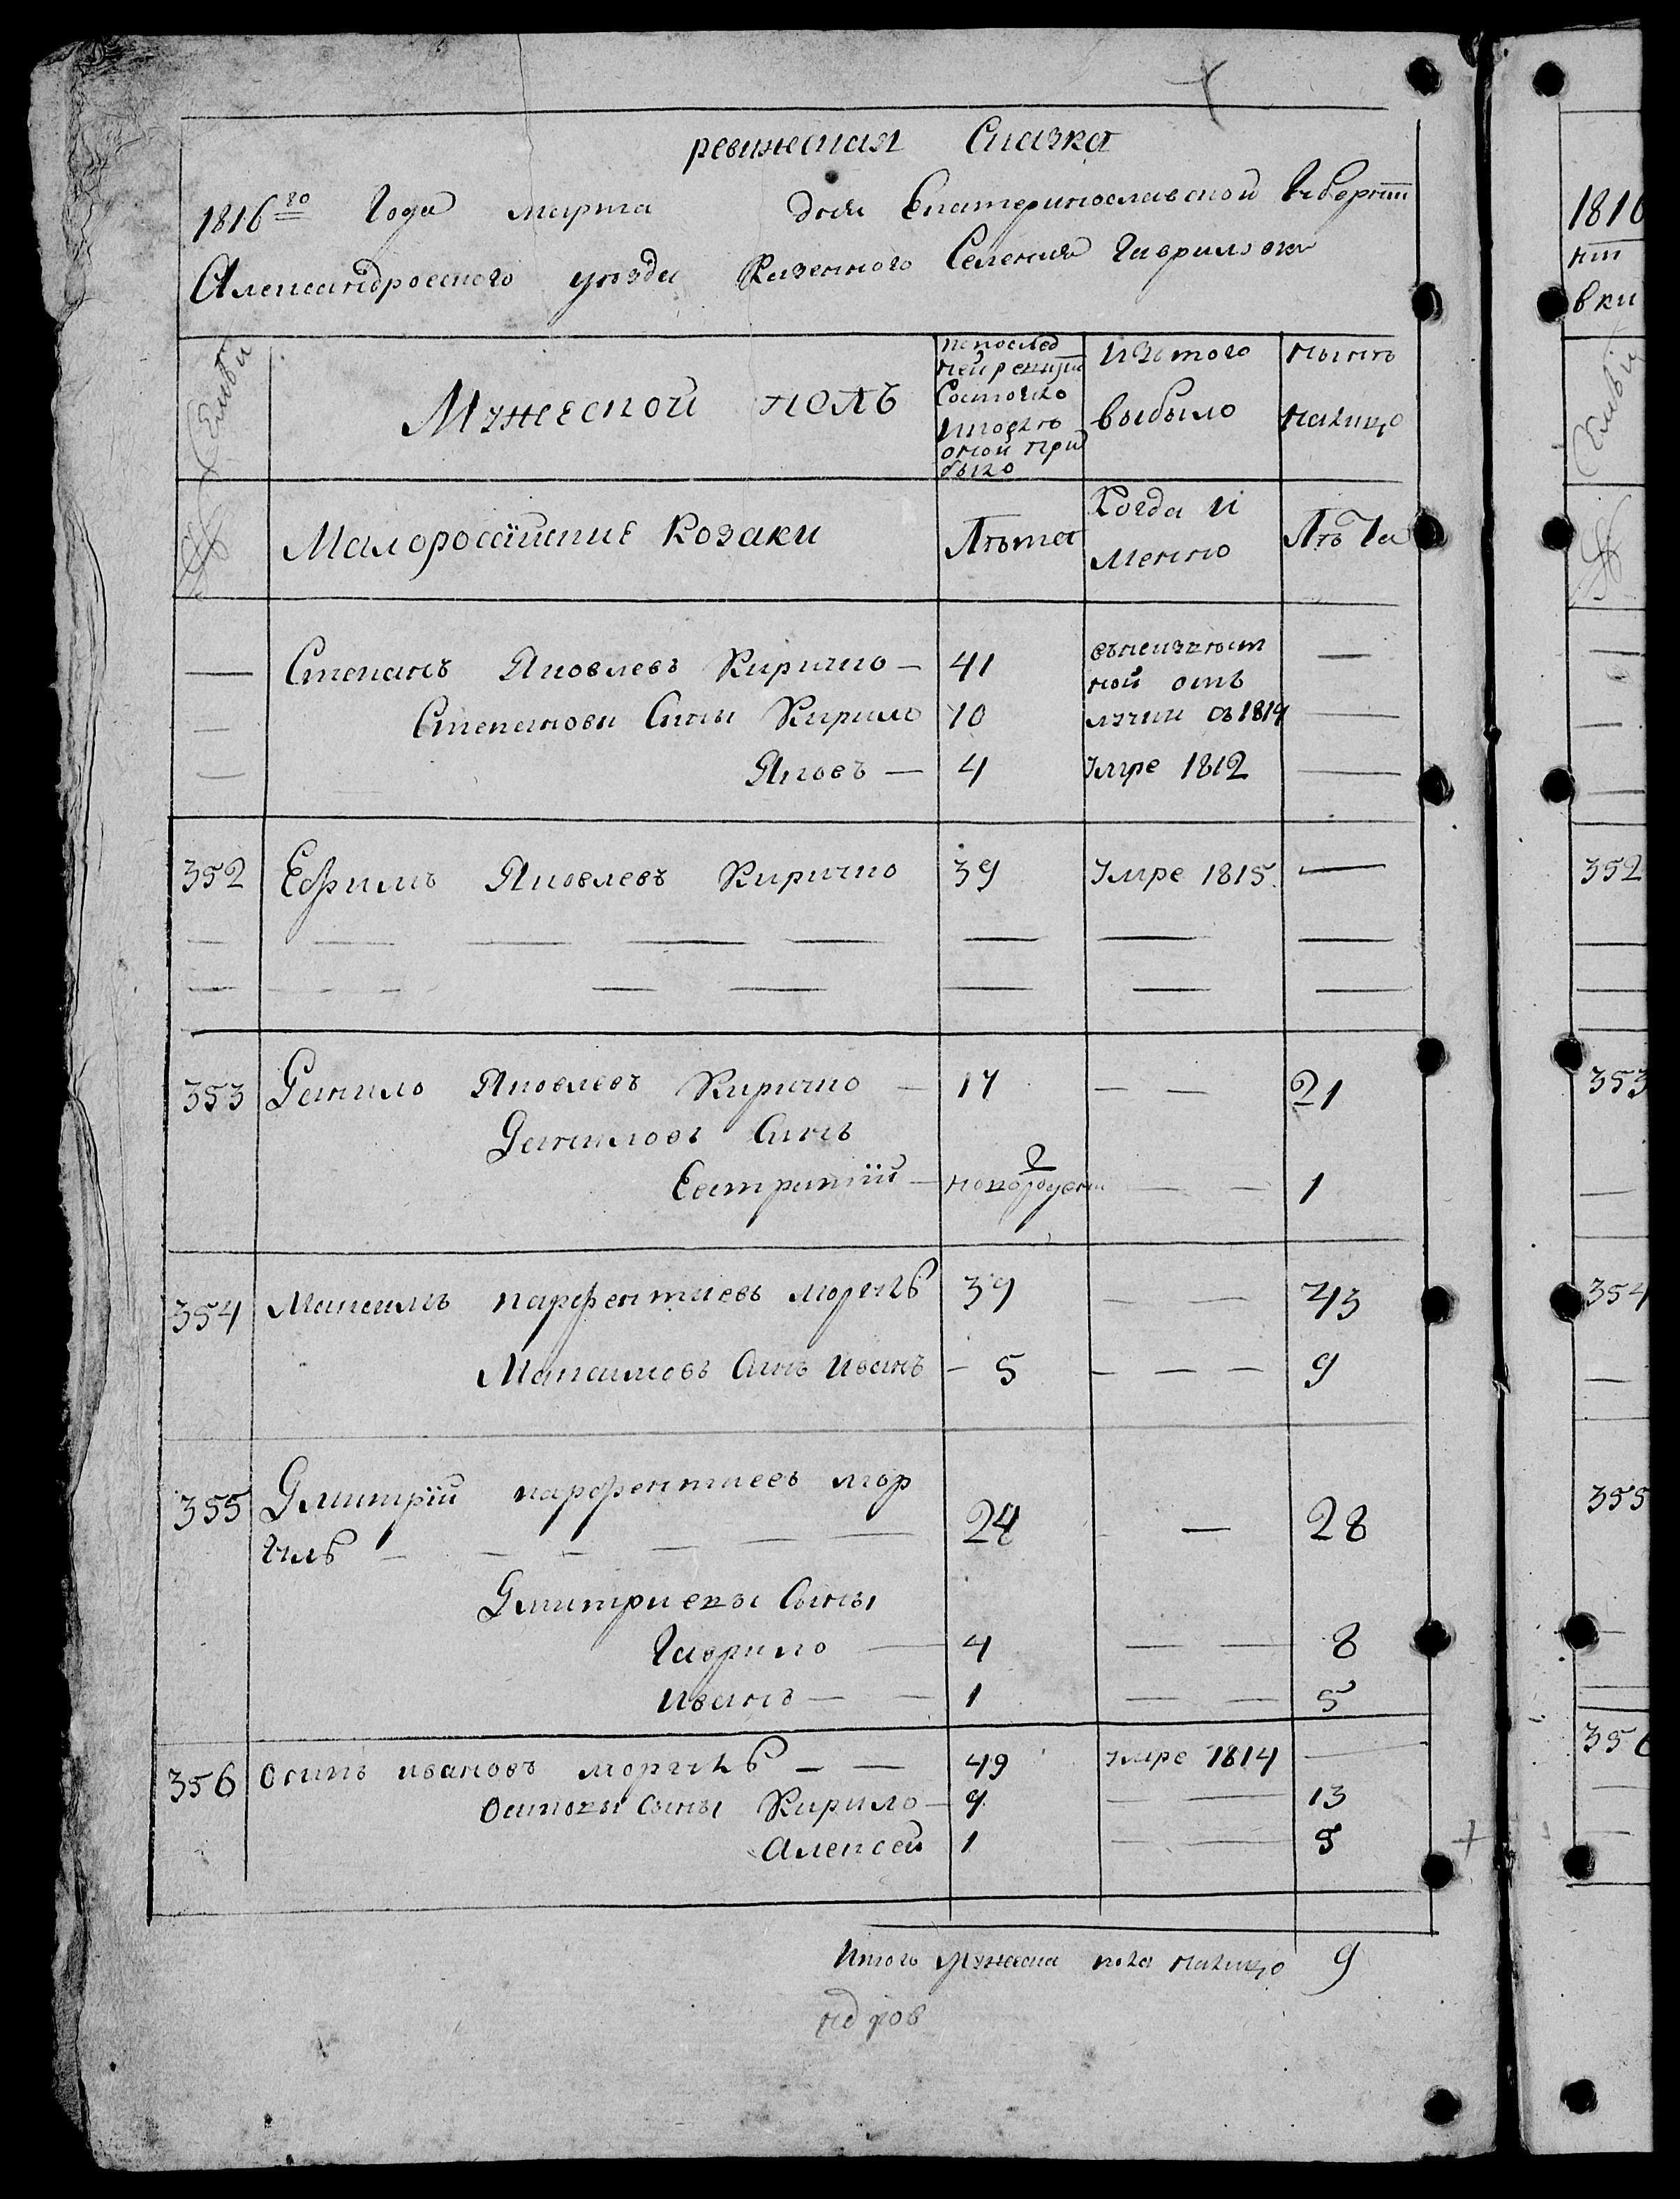 ревижская Сказка
1816го Года марта дня Екатеринославской Губернии
Александровского уезда Казенного Селения Гавриловки
Семьи
Мужеской полъ
по послед
ней ревизии
Состояло
и после
оной при
было
изъ того
выбыло
ныне
налицо
№
Малороссийские Козаки
Лѣта
Когда и
менно
Лѣта
— Степанъ Яковлевъ Киричко — 41 въ неизвест —
ной отъ
— Степановы Сыны Кирило 10 лучки съ 1814 —
— Яковъ — 4 Умре 1812 —
352 Ефимъ Яковлевъ Киричко 39 Умре 1815 —
353 Данило Яковлевъ Киричко — 17 — — 21
Даниловъ Сынъ
Евстратий — новорожден — — 1
354 Максимъ парфентиевъ моргуль 39 — — 43
Максимовъ Сынъ иванъ — 5 — — — 9
355 Дмитрий парфентиевъ мор
гуль — 24 — 28
Дмитриевы Сыны
Гаврило — 4 — — 8
иванъ — — 1 — — 5
356 осипъ ивановъ моргуль — — 49 умре 1814 —
осиповы сыны Кирило — 9 — — 13
Алексей 1 — — 5
Итого мужеска пола налицо 9
1816
нии
вки
Семьи
№
352
353
354
355
356